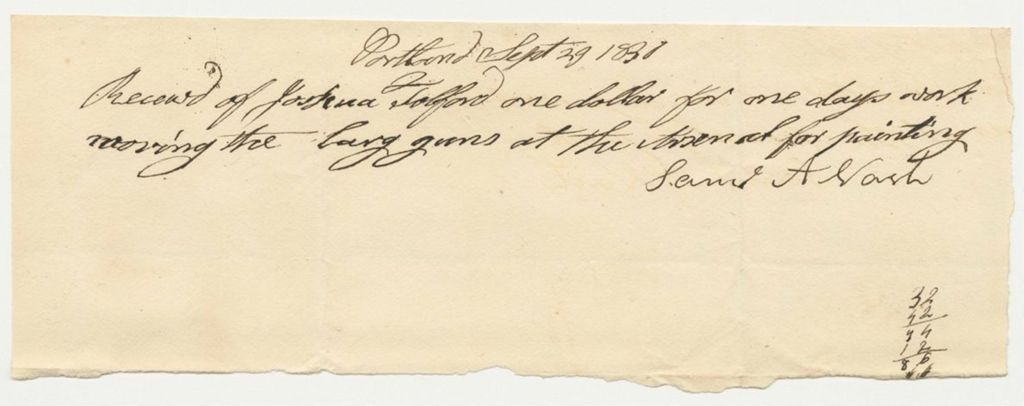 Portland Sept 29 1830
Received of Joshua Tolford one dollar for one days work
moving the larg guns at the Arsenal for painting
Saml A Nash
32
42
74
12
86